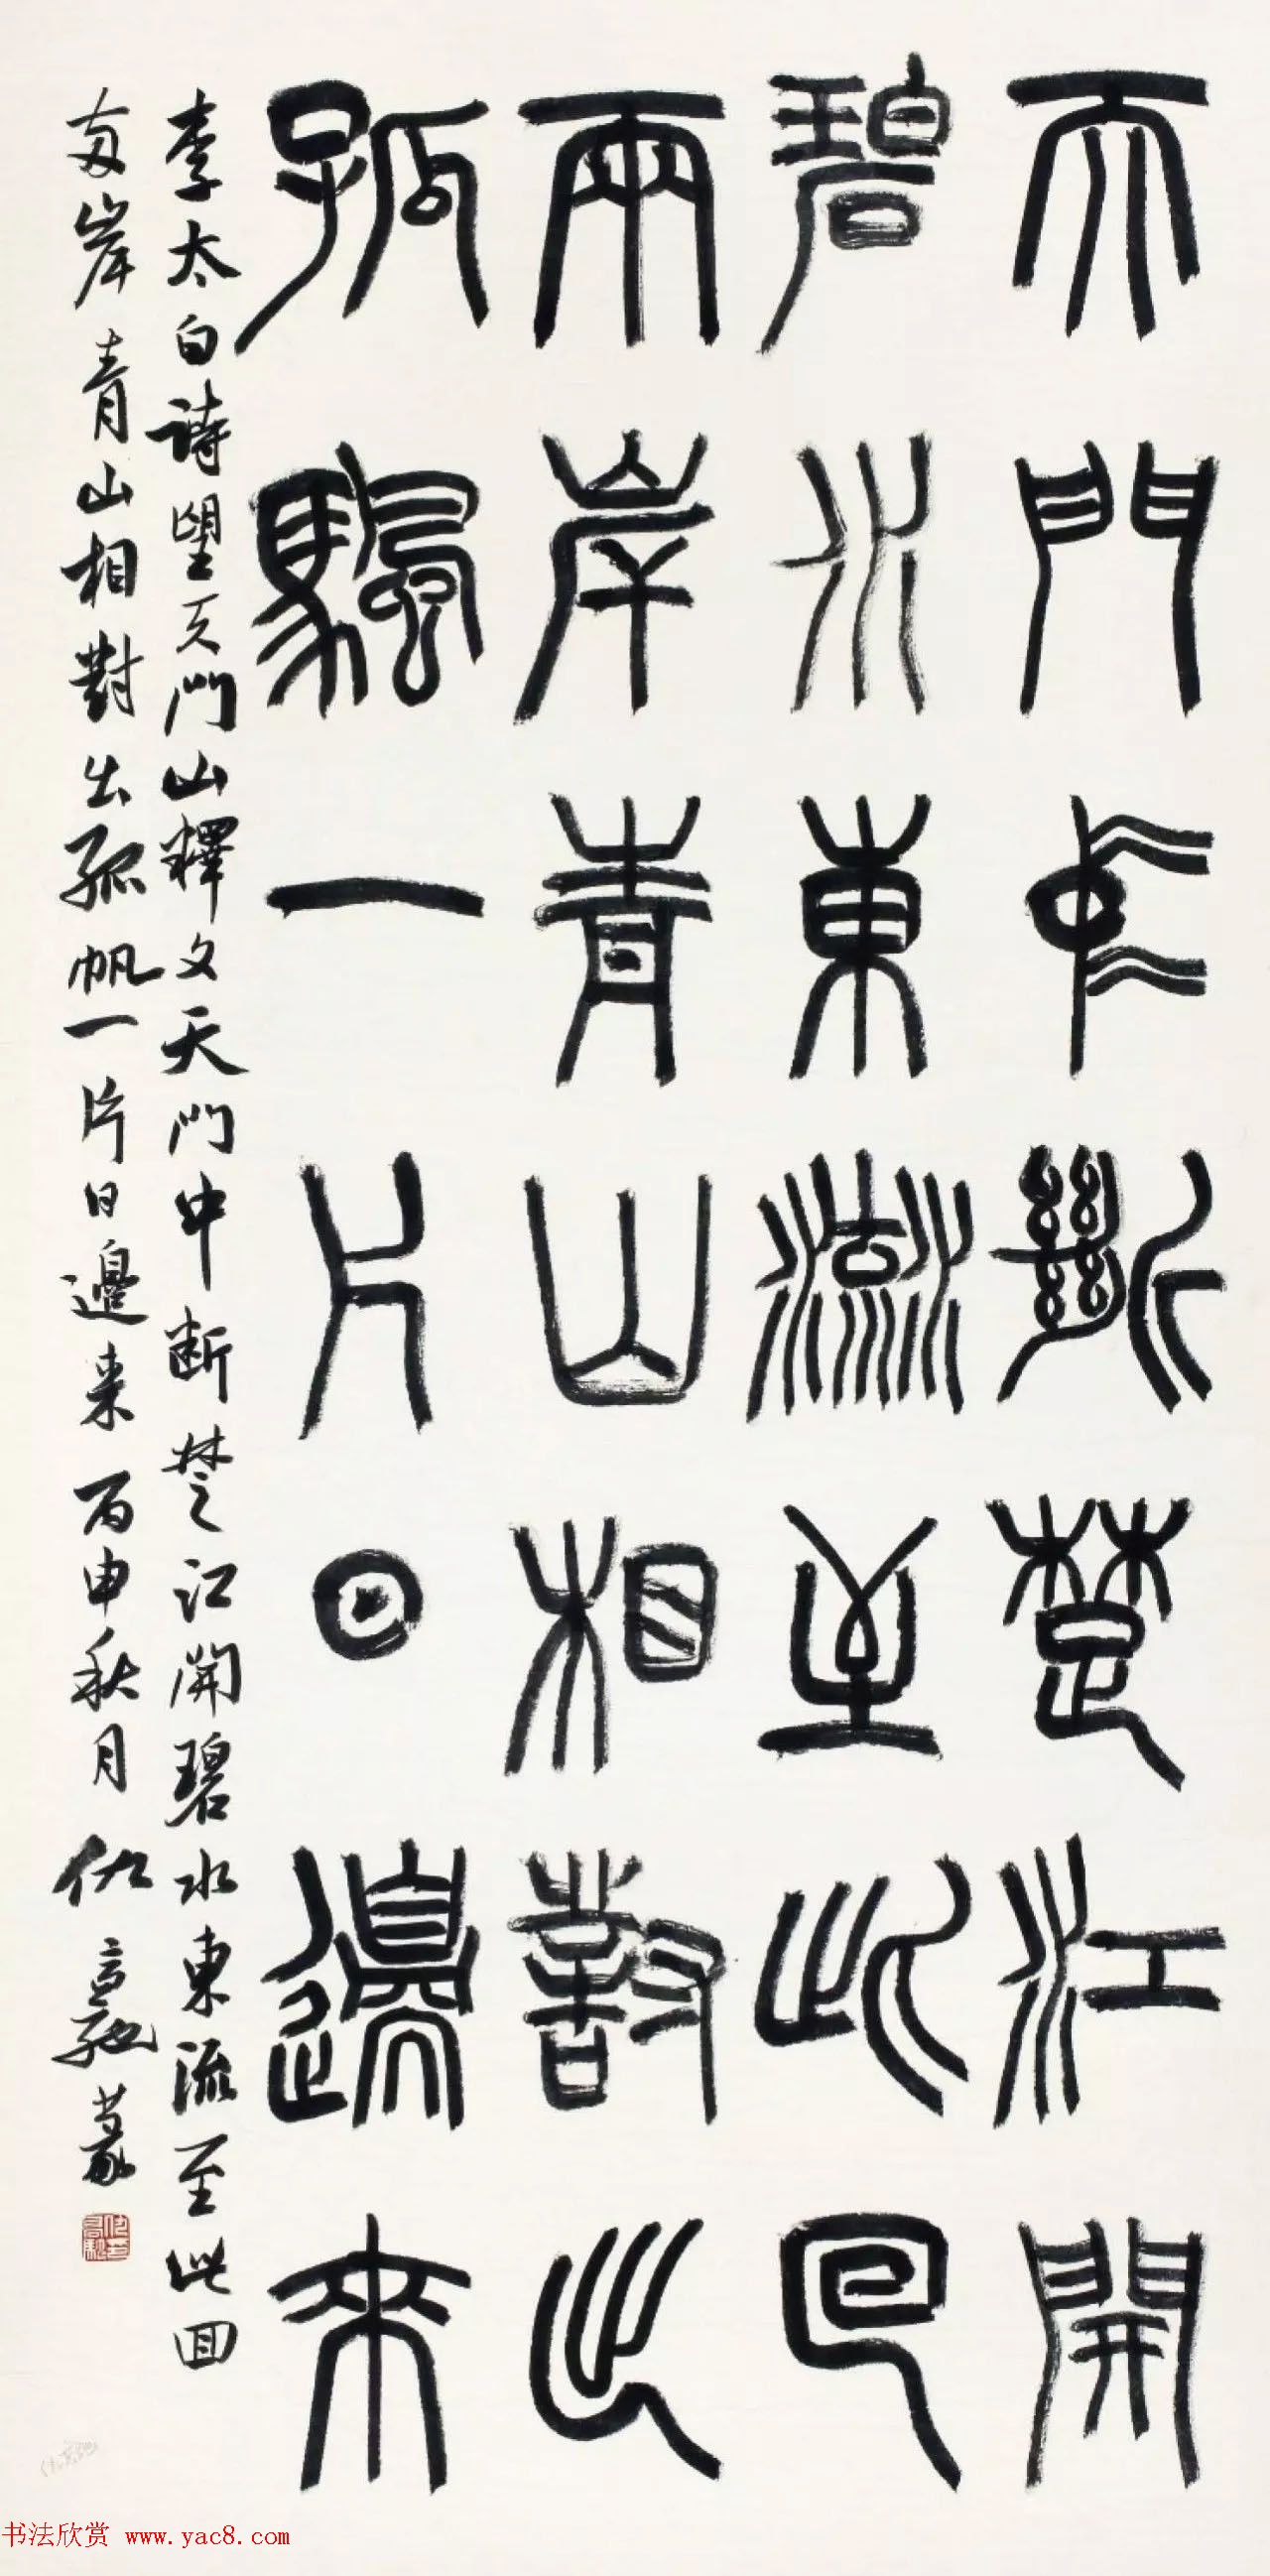 天門中斷楚江開
碧水東流至此回
兩岸青山相對出
孤颿一片日邊來
李太白詩望天門山釋文天門中断楚江開碧水東流至此回
两岸青山相對出孤帆一片日邊来 丙申秋月 仇高馳篆
书法欣赏 www.yac8.com